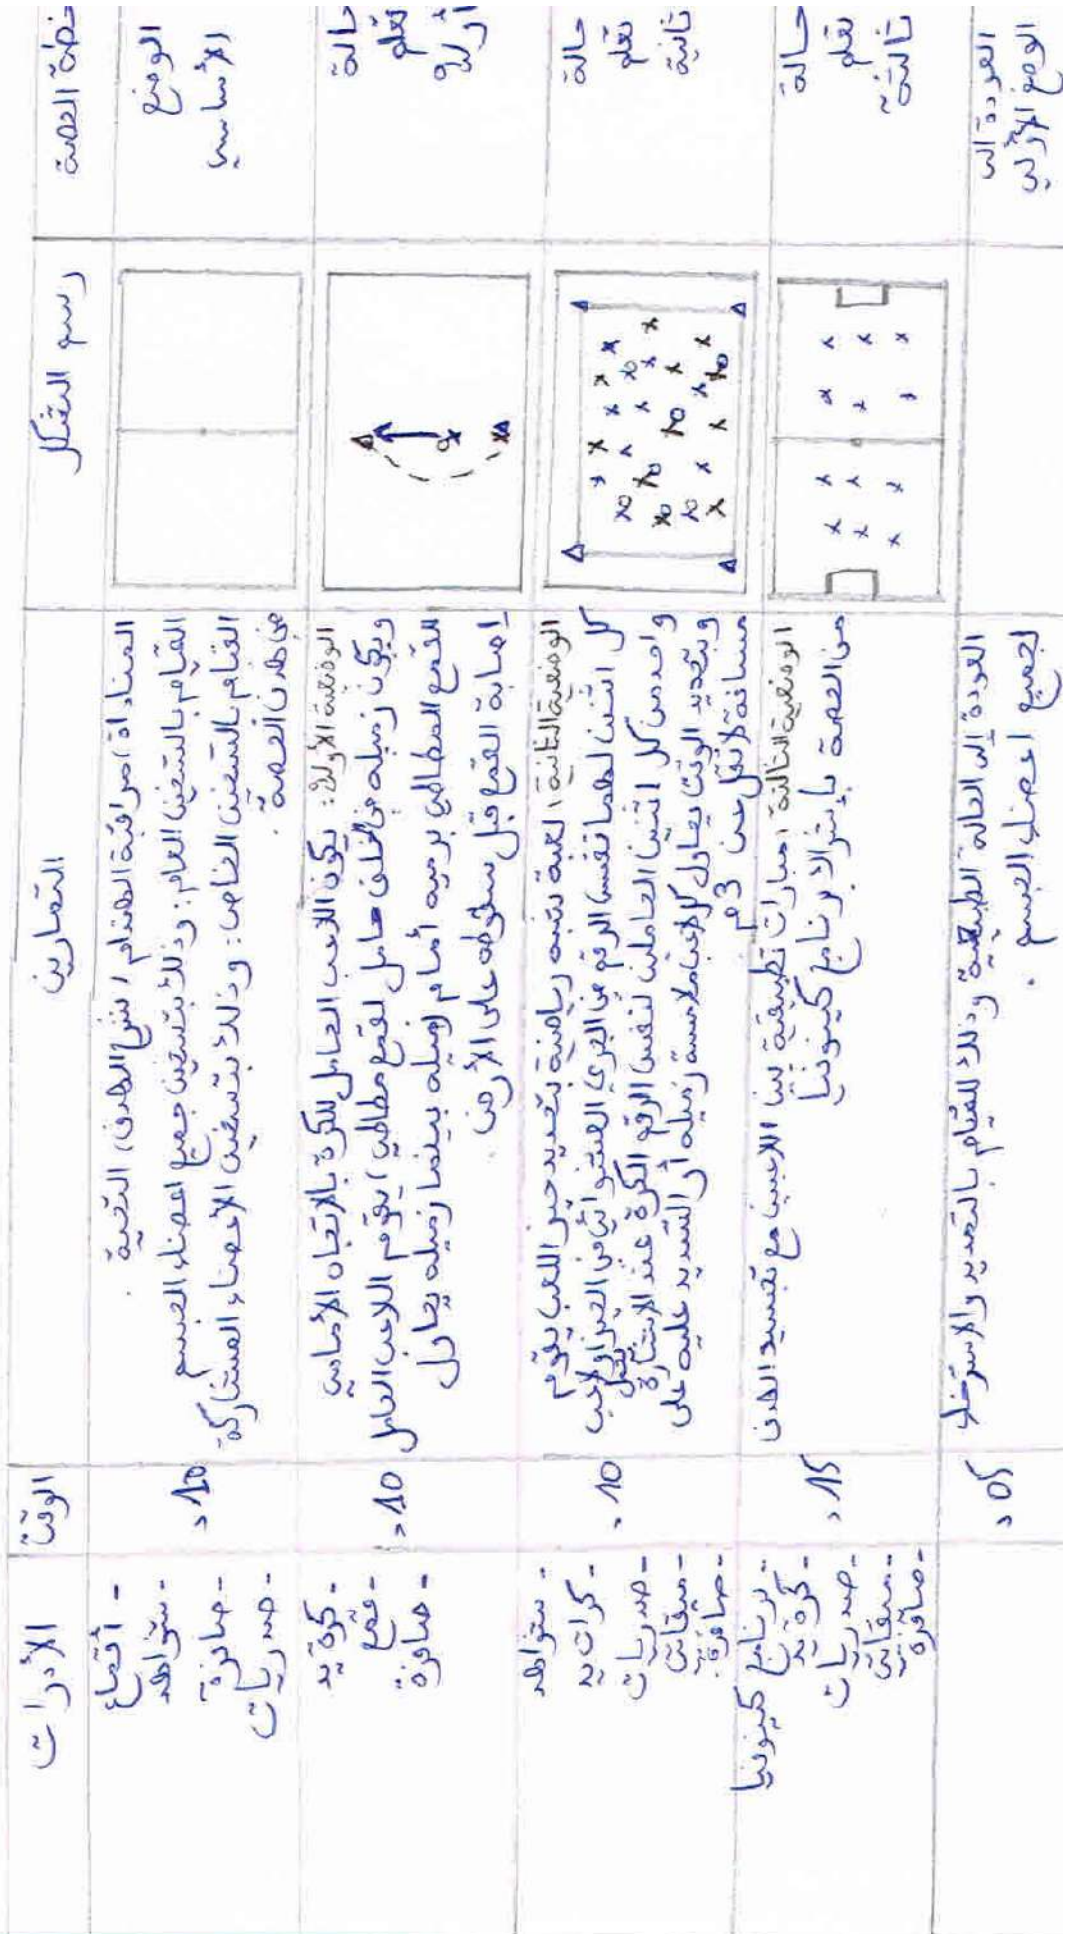 خطة الحصة
رسم الشكل
التمارين
الوقت
الأدوات
الوضع
الأساسي
المناداة، مراقبة الهندام، شرح الهدف، التحية.
القيام بالتسخين العام: وذلك بتسخين جميع اعضاء الجسم
القيام بالتسخين الخاص: وذلك بتسخين الأعضاء المشاركة
في هدف الحصة.
10د
- أقماع
- شواهد
- صافرة
- صدريات
حالة
تعلم
أولى
الوضعية الأولى: يكون اللاعب الحامل للكرة بالاتجاه الأمامي
ويكون زميله في الخلف حامل لقمع مطاطي، يقوم اللاعب الحامل
القمع المطاطي برميه أمام زميله بينما زميله يحاول
إصابة القمع قبل سقوطه على الأرض.
10د
- كرة يد
- قمع
- صافرة
حالة
تعلم
ثانية
الوضعية الثانية: لعبة شبه رياضية بتحديد حيز اللعب يقوم
كل اثنين لهما نفس الرقم في الجري العشوائي في الحيز ولاعب
واحد من كل اثنين الحاملين لنفس الرقم الكرة عند الاشارة
وبتحديد الوقت يحاول كل لاعب ملامسة زميله أو التسديد عليه على
مسافة لا تقل عن 3م
10د
- شواهد
- كرات يد
- صدريات
- ميقاتي
- صافرة
حالة
تعلم
ثالثة
الوضعية الثالثة: مباراة تطبيقية بين اللاعبين مع تجسيد الهدف
من الحصة بإشراك برنامج كينوفيا
15د
- برنامج كينوفيا
- كرة يد
- صدريات
- ميقاتي
- صافرة
العودة الى
الوضع الأولي
العودة إلى الحالة الطبيعية وذلك للقيام بالتمديد والاسترخاء
لجميع اعضاء الجسم.
05د